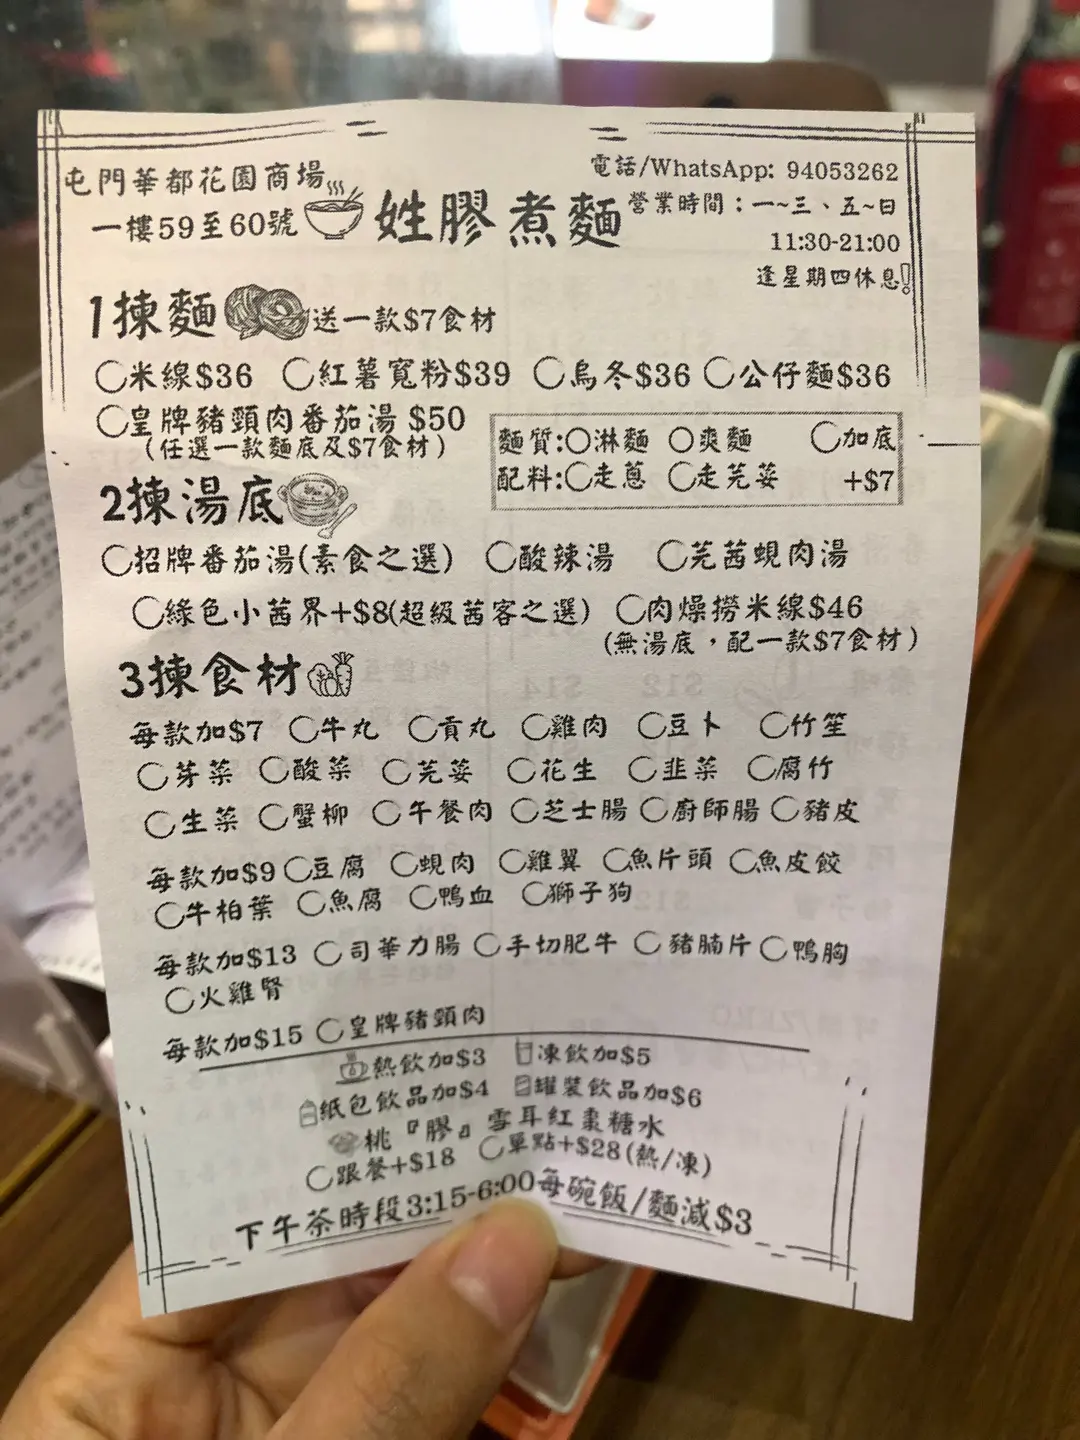 屯門華都花園商場
一樓59至60號
姓膠煮麵
電話/WhatsApp: 94053262
營業時間：一~三、五~日
11:30-21:00
逢星期四休息!
1揀麵 送一款$7食材
○米線$36 ○紅薯寬粉$39 ○烏冬$36 ○公仔麵$36
○皇牌豬頸肉番茄湯 $50
(任選一款麵底及$7食材)
麵質:○淋麵 ○爽麵 ○加底
配料:○走蔥 ○走芫荽 +$7
2揀湯底
○招牌番茄湯(素食之選) ○酸辣湯 ○芫茜蜆肉湯
○綠色小茜界+$8(超級茜客之選) ○肉燥撈米線$46
(無湯底，配一款$7食材)
3揀食材
每款加$7 ○牛丸 ○貢丸 ○雞肉 ○豆卜 ○竹笙
○芽菜 ○酸菜 ○芫荽 ○花生 ○韭菜 ○腐竹
○生菜 ○蟹柳 ○午餐肉 ○芝士腸 ○廚師腸 ○豬皮
每款加$9 ○豆腐 ○蜆肉 ○雞翼 ○魚片頭 ○魚皮餃
○牛柏葉 ○魚腐 ○鴨血 ○獅子狗
每款加$13 ○司華力腸 ○手切肥牛 ○豬腩片 ○鴨胸
○火雞腎
每款加$15 ○皇牌豬頸肉
熱飲加$3 凍飲加$5
紙包飲品加$4 罐裝飲品加$6
桃『膠』雪耳紅棗糖水
○跟餐+$18 ○單點+$28(熱/凍)
下午茶時段3:15-6:00每碗飯/麵減$3